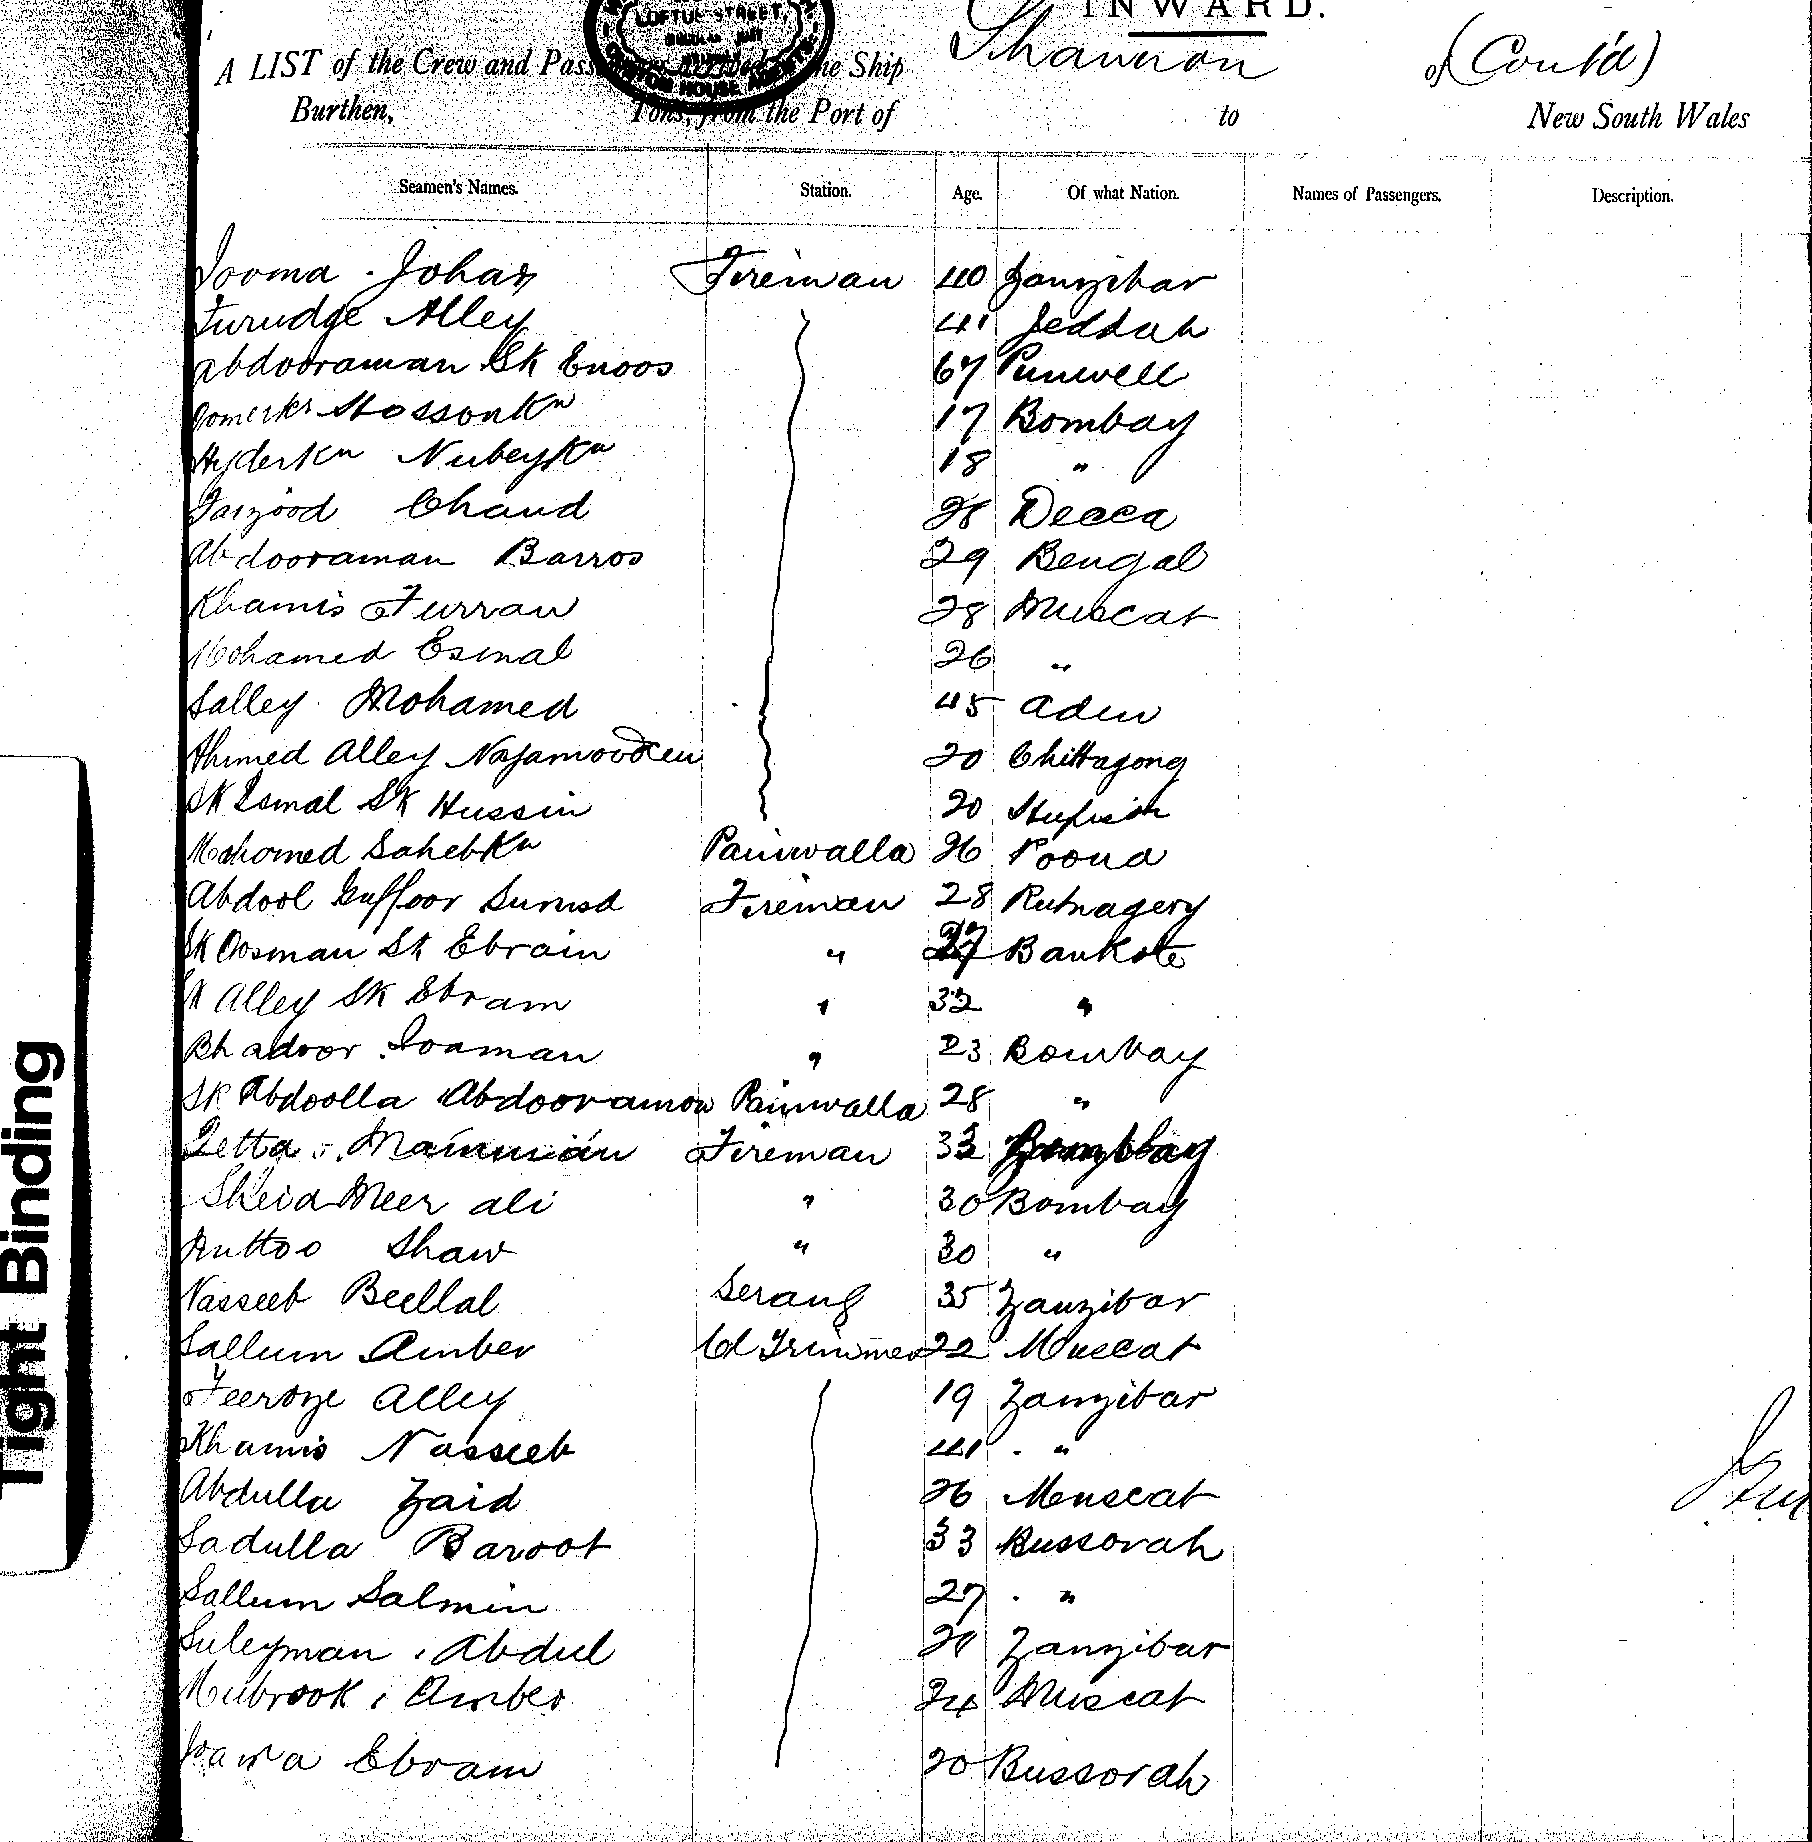 INWARD.
LOFTUS STREET,
CUSTOM HOUSE
A LIST of the Crew and Passengers arrived in the Ship Shannon of (Cont'd)
Burthen, Tons, from the Port of to New South Wales
Seamen's Names. Station. Age. Of what Nation. Names of Passengers. Description.
Jooma Johar Fireman 40 Zanzibar
Furudge Alley 41 Jeddah
Abdooraman Sk Enoos 67 Punwell
Hossonkn 17 Bombay
Hyderkn Nubeykn 18 "
Chand 28 Decca
Abdooraman Barros 29 Bengal
Khamis Furran 28 Muscat
Mohamed Esmal 26 "
Salley Mohamed 45 Aden
Ahmed Alley Najamoodeen 20 Chittagong
Sk Esmal Sk Hussin 20
Mahomed Sahebkn Paniwalla 26 Poona
Abdool Guffoor Fireman 28 Rutnagery
Sk Oosman Sk Ebrain " 27 Bankote
Sk Alley Sk Ebram " 32 "
Bhadoor Joaman " 23 Bombay
Sk Abdoolla Abdooramon Paniwalla 28 "
Fireman 33
Sheid Meer ali " 30 Bombay
Nuttoo Shaw " 30 "
Nasseeb Beellal Serang 35 Zanzibar
Sallum Amber Col Trimmer 22 Muscat
Feeroze Alley 19 Zanzibar
Khamis Nasseeb 41 "
Abdulla Zaid 26 Muscat
Sadulla Baroot 33 Bussorah
Sallum Salmin 27 "
Suleyman Abdul Zanzibar
Mubrook Amber 24 Muscat
Ebram 20 Bussorah
Tight Binding